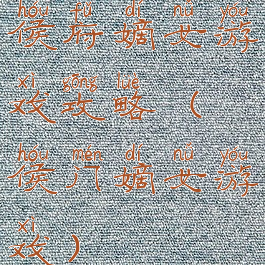 hóu fǔ dí nǚ yóu
侯府嫡女游
xì gōng lüè
戏攻略（
hóu mén dí nǚ yóu
侯门嫡女游
xì
戏）